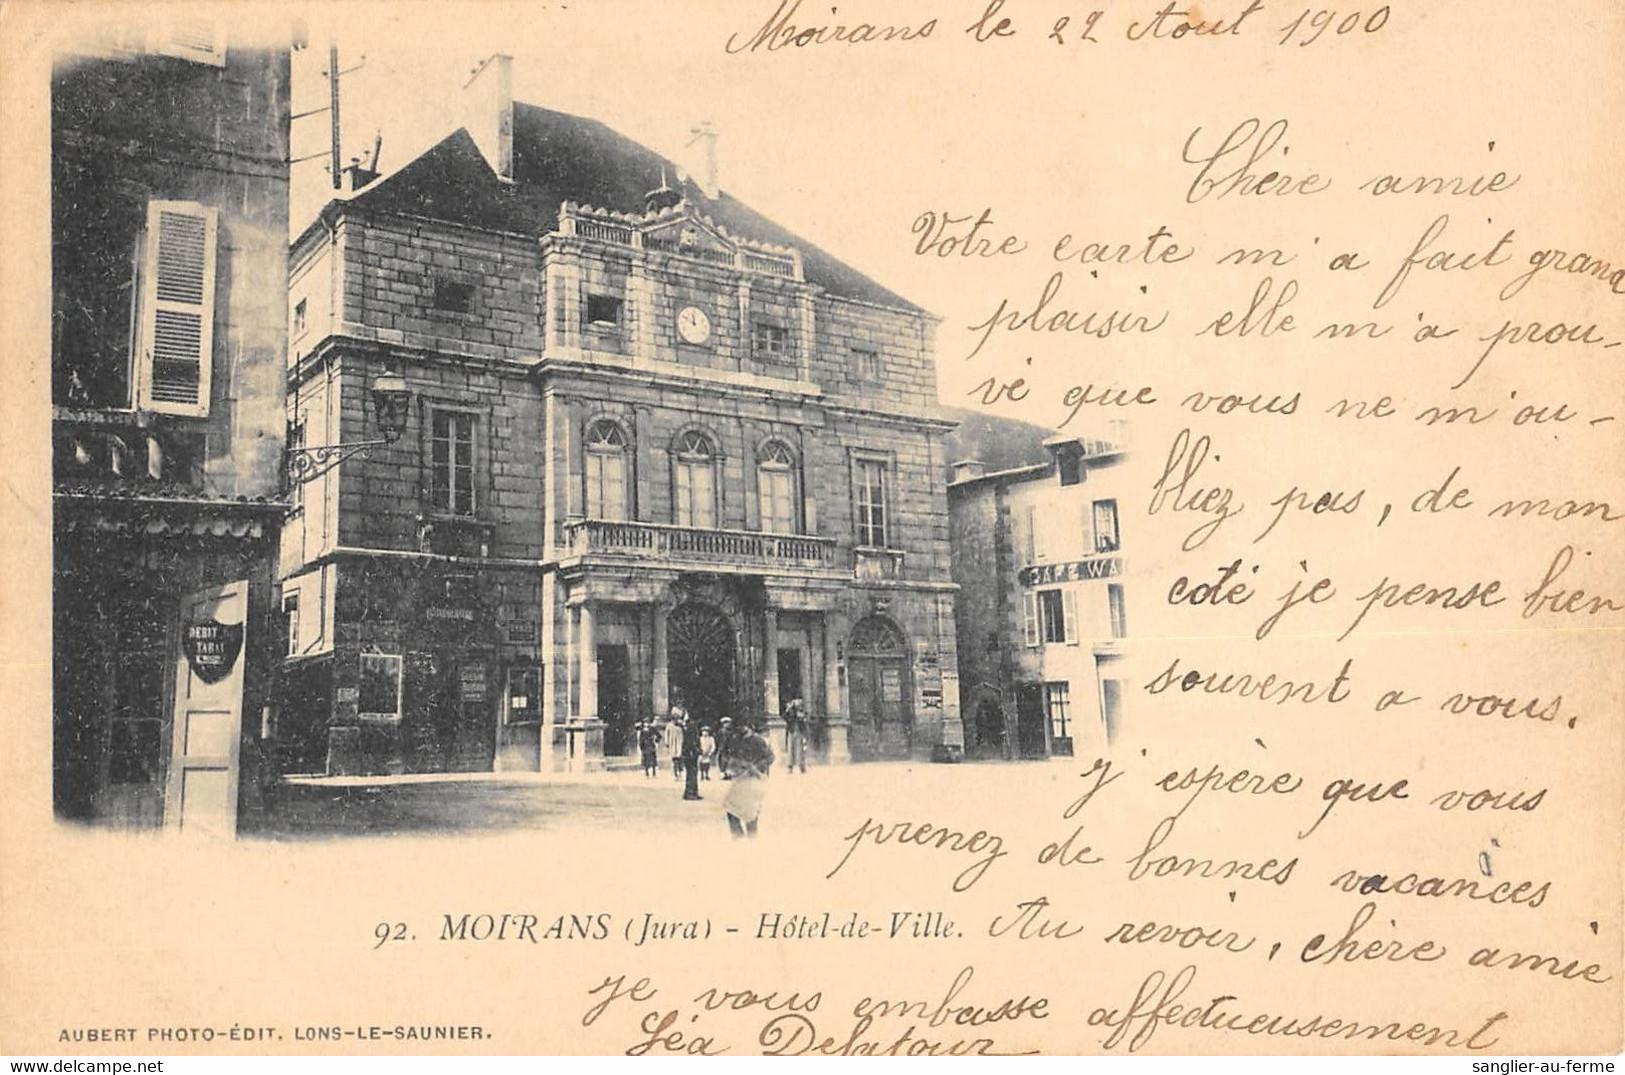 Moirans le 22 Aout 1900
Chère amie
Votre carte m'a fait grand
plaisir elle m'a prou-
vé que vous ne m'ou-
bliez pas, de mon
coté je pense bien
souvent a vous.
J'espère que vous
prenez de bonnes vacances
Au revoir, chère amie
je vous embasse affectueusement
Léa Delatour
DEBIT
TABAC
CAFE WA
92. MOIRANS (Jura) - Hôtel-de-Ville.
AUBERT PHOTO-ÉDIT. LONS-LE-SAUNIER.
sanglier-au-ferme